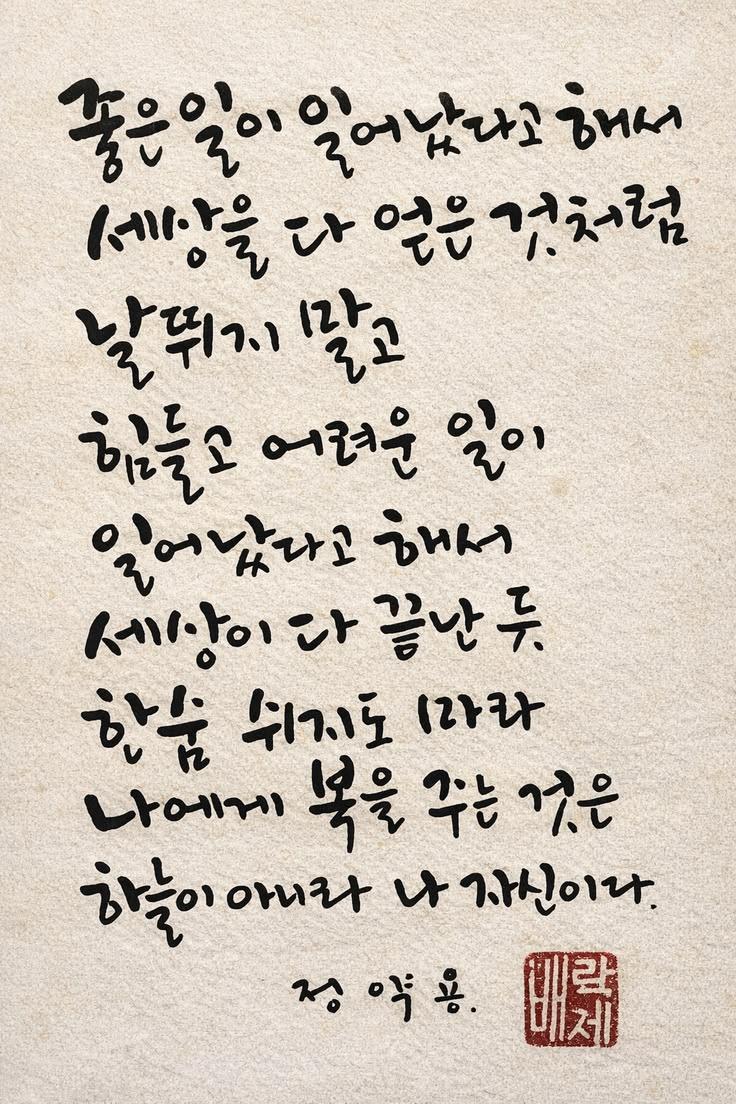 좋은 일이 일어났다고 해서
세상을 다 얻은 것처럼
날뛰지 말고
힘들고 어려운 일이
일어났다고 해서
세상이 다 끝난 듯
한숨 쉬지도 마라
나에게 복을 주는 것은
하늘이 아니라 나 자신이다.
정약용.
배락제